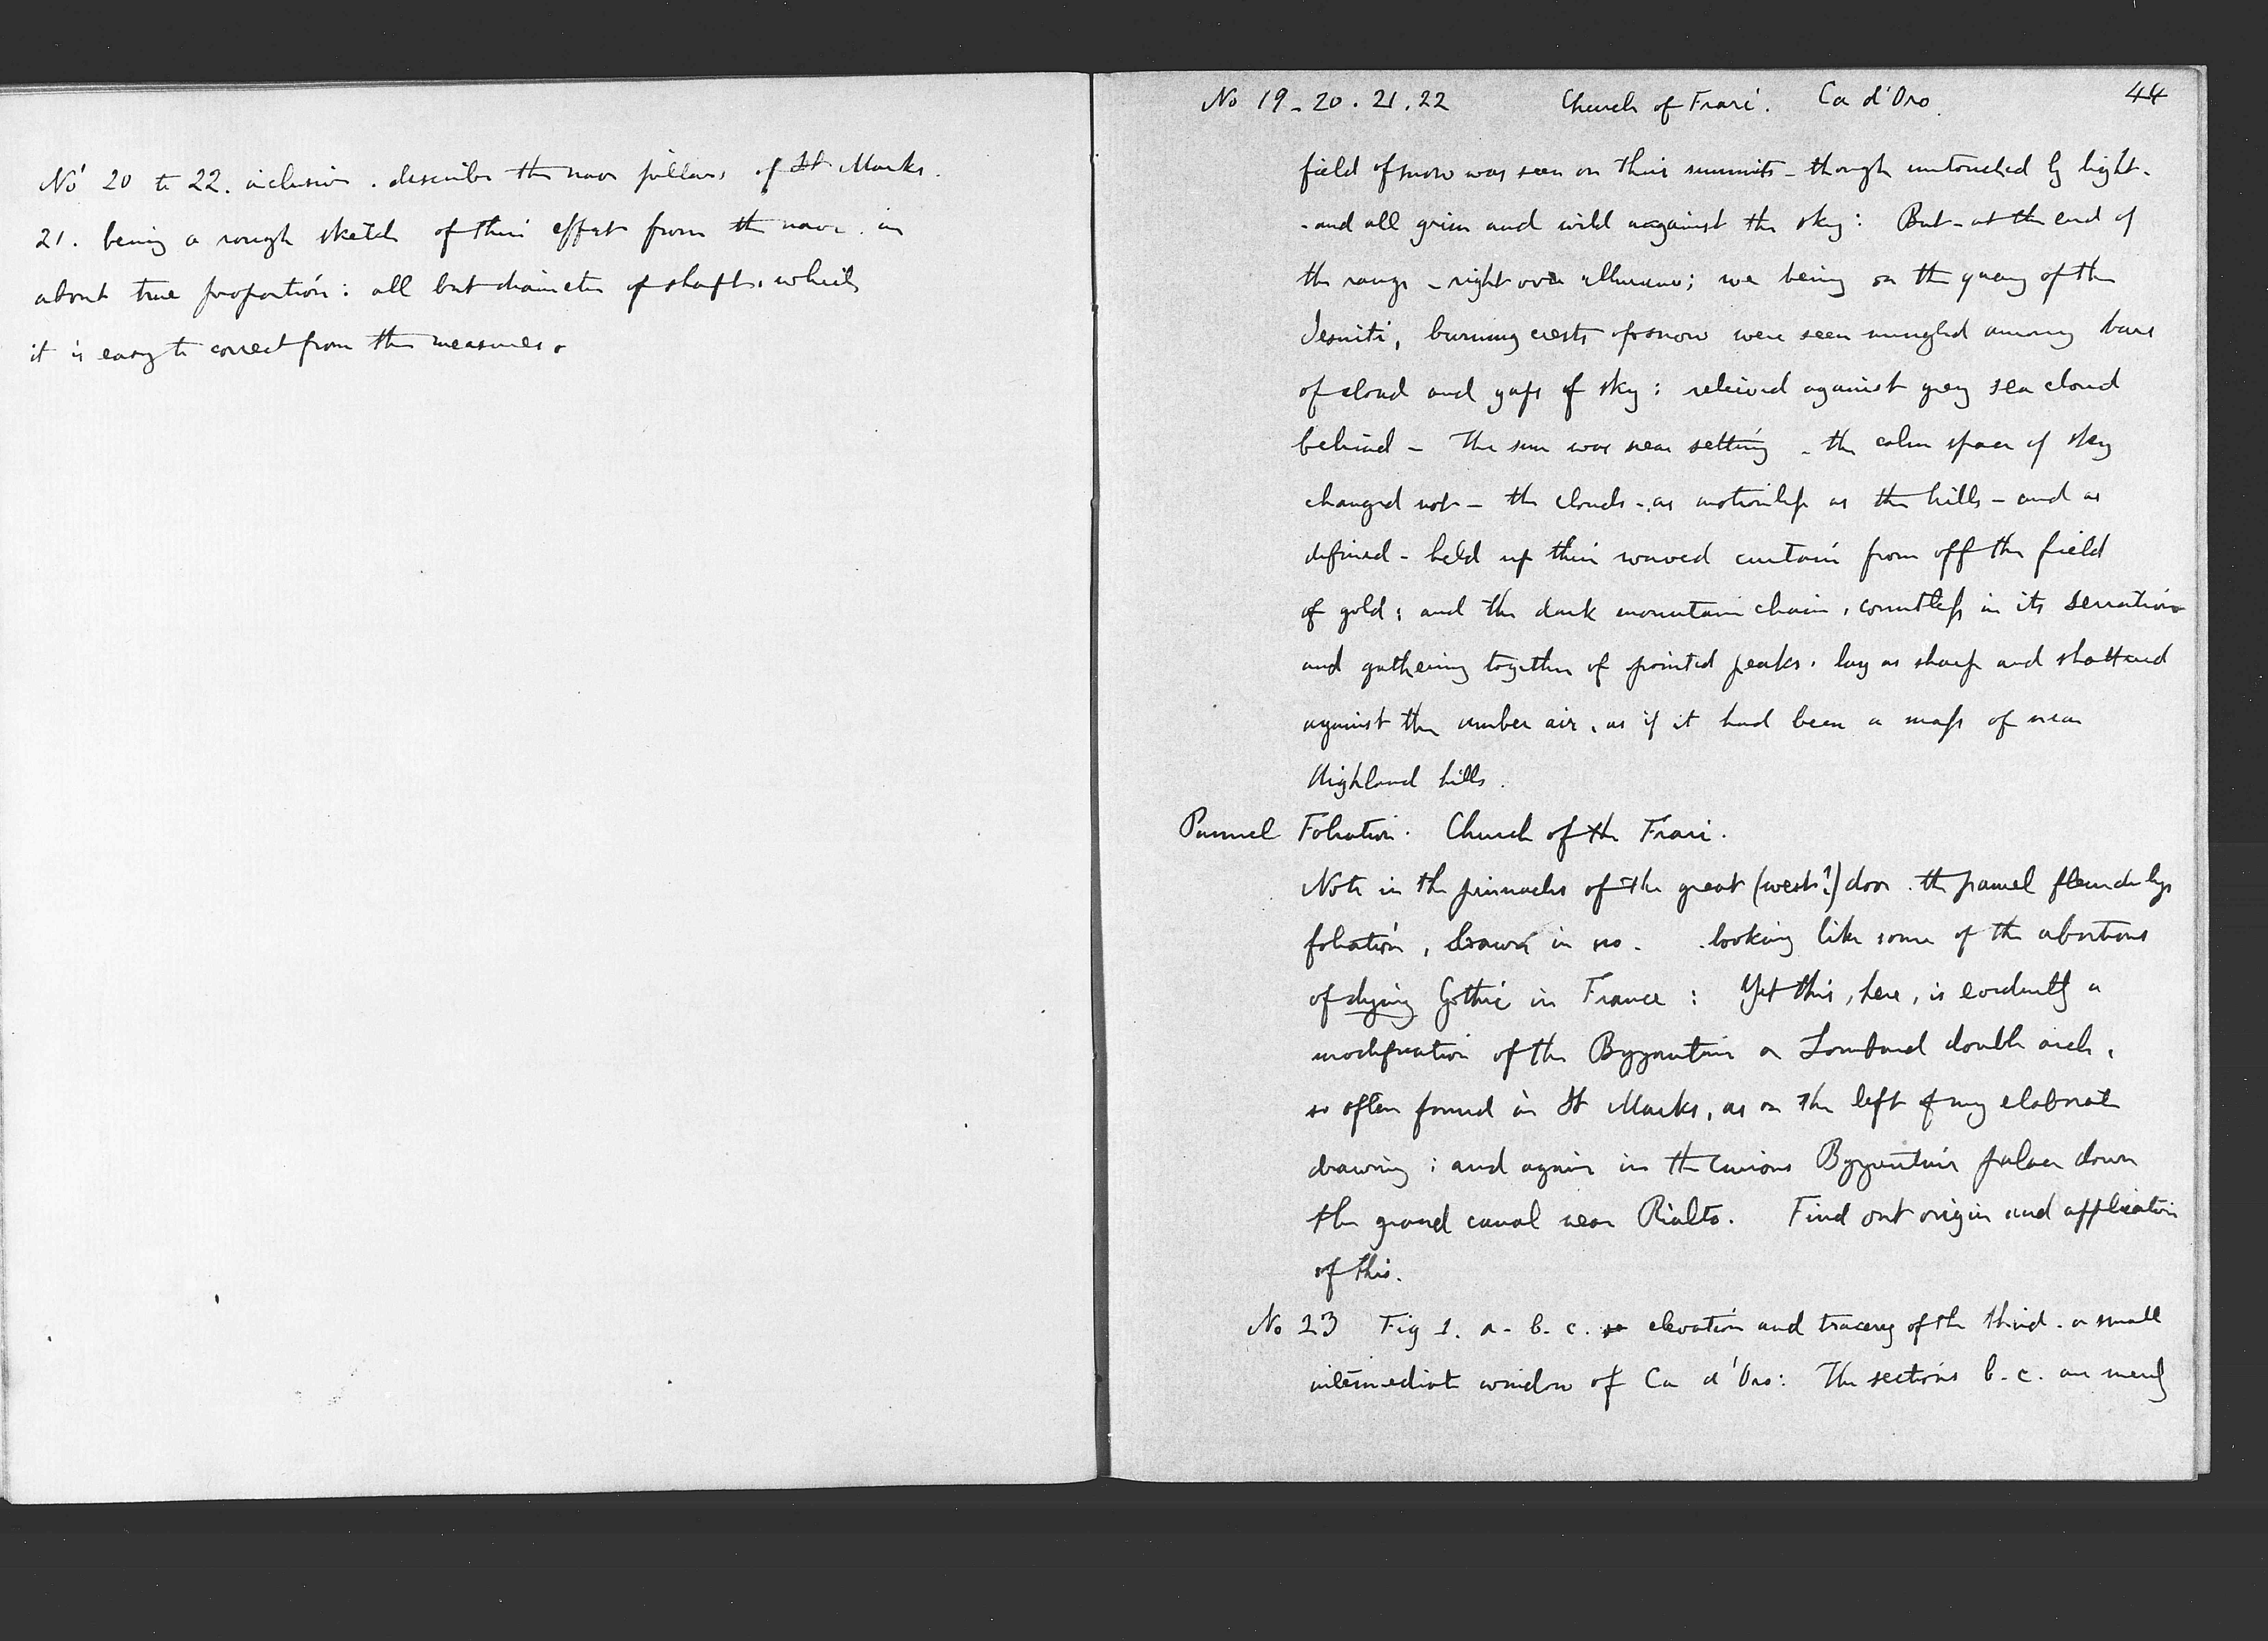 Nos 20 to 22. inclusive. describe the nave pillars of St Marks.
21. being a rough sketch of their effect from the nave. in
about true proportion: all but diameter of shafts. which
it is easy to correct from the measures.
No 19-20.21.22 Church of Frari. Ca d'Oro. 44
field of snow was seen on their summits - though untouched by light.
- and all grim and wild against the sky: But - at the end of
the range - right over Murano; we being on the quay of the
Jesuiti, burning crests of snow were seen mingled among bars
of cloud and gaps of sky: relieved against grey sea cloud
behind - The sun was near setting - the calm space of sky
changed not - the clouds - as motionless as the hills - and as
defined - held up their waved curtain from off the field
of gold: and the dark mountain chain, countless in its serration
and gathering together of pointed peaks. lay as sharp and shattered
against the amber air, as if it had been a mass of near
Highland hills.
Pannel Foliation. Church of the Frari.
Note in the pinnacles of the great (west?) door. the pannel fleur de lys
foliation, drawn in no. looking like some of the abortions
of dying Gothic in France: Yet this, here, is evidently a
modification of the Byzantine or Lombard double arch,
so often found in St Marks, as on the left of my elaborate
drawing; and again in the curious Byzantine palace down
the grand canal near Rialto. Find out origin and application
of this.
No 23 Fig 1. a. b. c. elevation and tracery of the third. or small
intermediate window of Ca d'Oro: The sections b. c. are merely